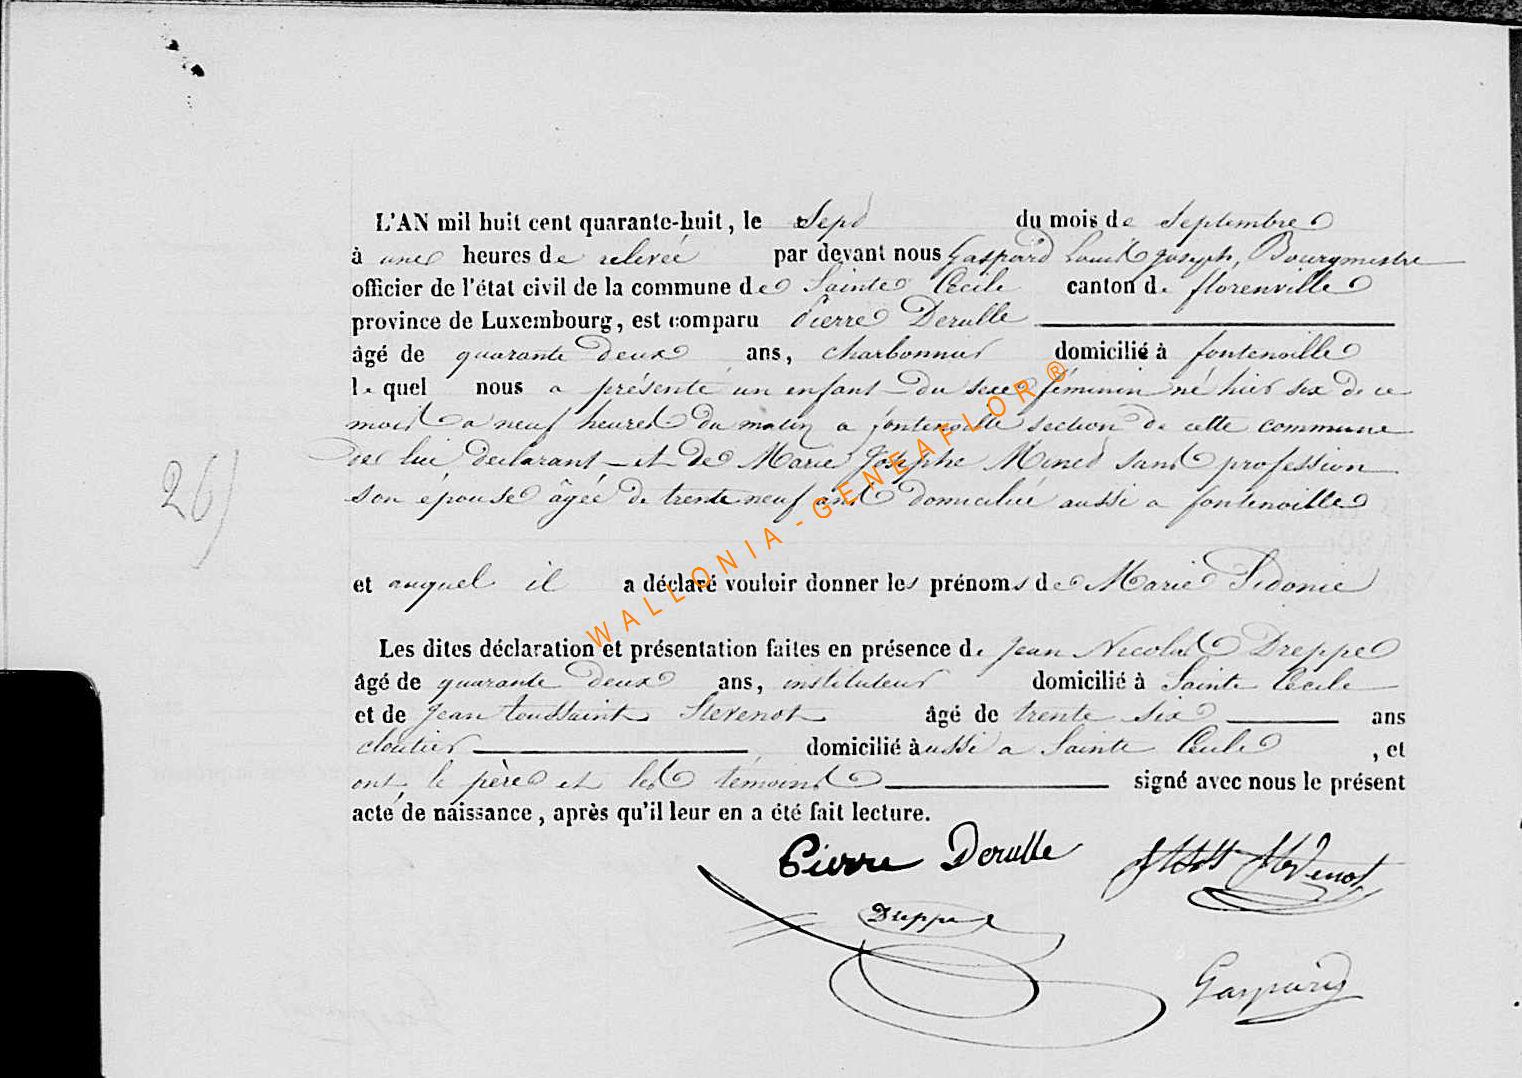 L'AN mil huit cent quarante-huit, le Sept du mois de Septembre
à une heures de relevée par devant nous Gaspard Louis Joseph, Bourgmestre
officier de l'état civil de la commune de Sainte Cécile canton de florenville
province de Luxembourg, est comparu Pierre Derulle
âgé de quarante deux ans, charbonnier domicilié à fontenoille
le quel nous a présenté un enfant du sexe féminin né hier six de ce
mois a neuf heures du matin a fontenoille section de cette commune
de lui déclarant et de Marie Josephe sans profession
son épouse âgée de trente neuf ans domiciliée aussi a fontenoille
26)
et auquel il a déclaré vouloir donner les prénoms de Marie Sidonie
Les dites déclaration et présentation faites en présence de Jean Nicolas Dreppe
âgé de quarante deux ans, instituteur domicilié à Sainte Cecile
et de Jean toussaint Stevenot âgé de trente six ans
cloutier domicilié à aussi a Sainte Cecile , et
ont le père et les témoins signé avec nous le présent
acte de naissance, après qu'il leur en a été fait lecture.
Pierre Derulle Stevenot
Dreppe
Gaspard
WALLONIA - GENEAFLOR ®